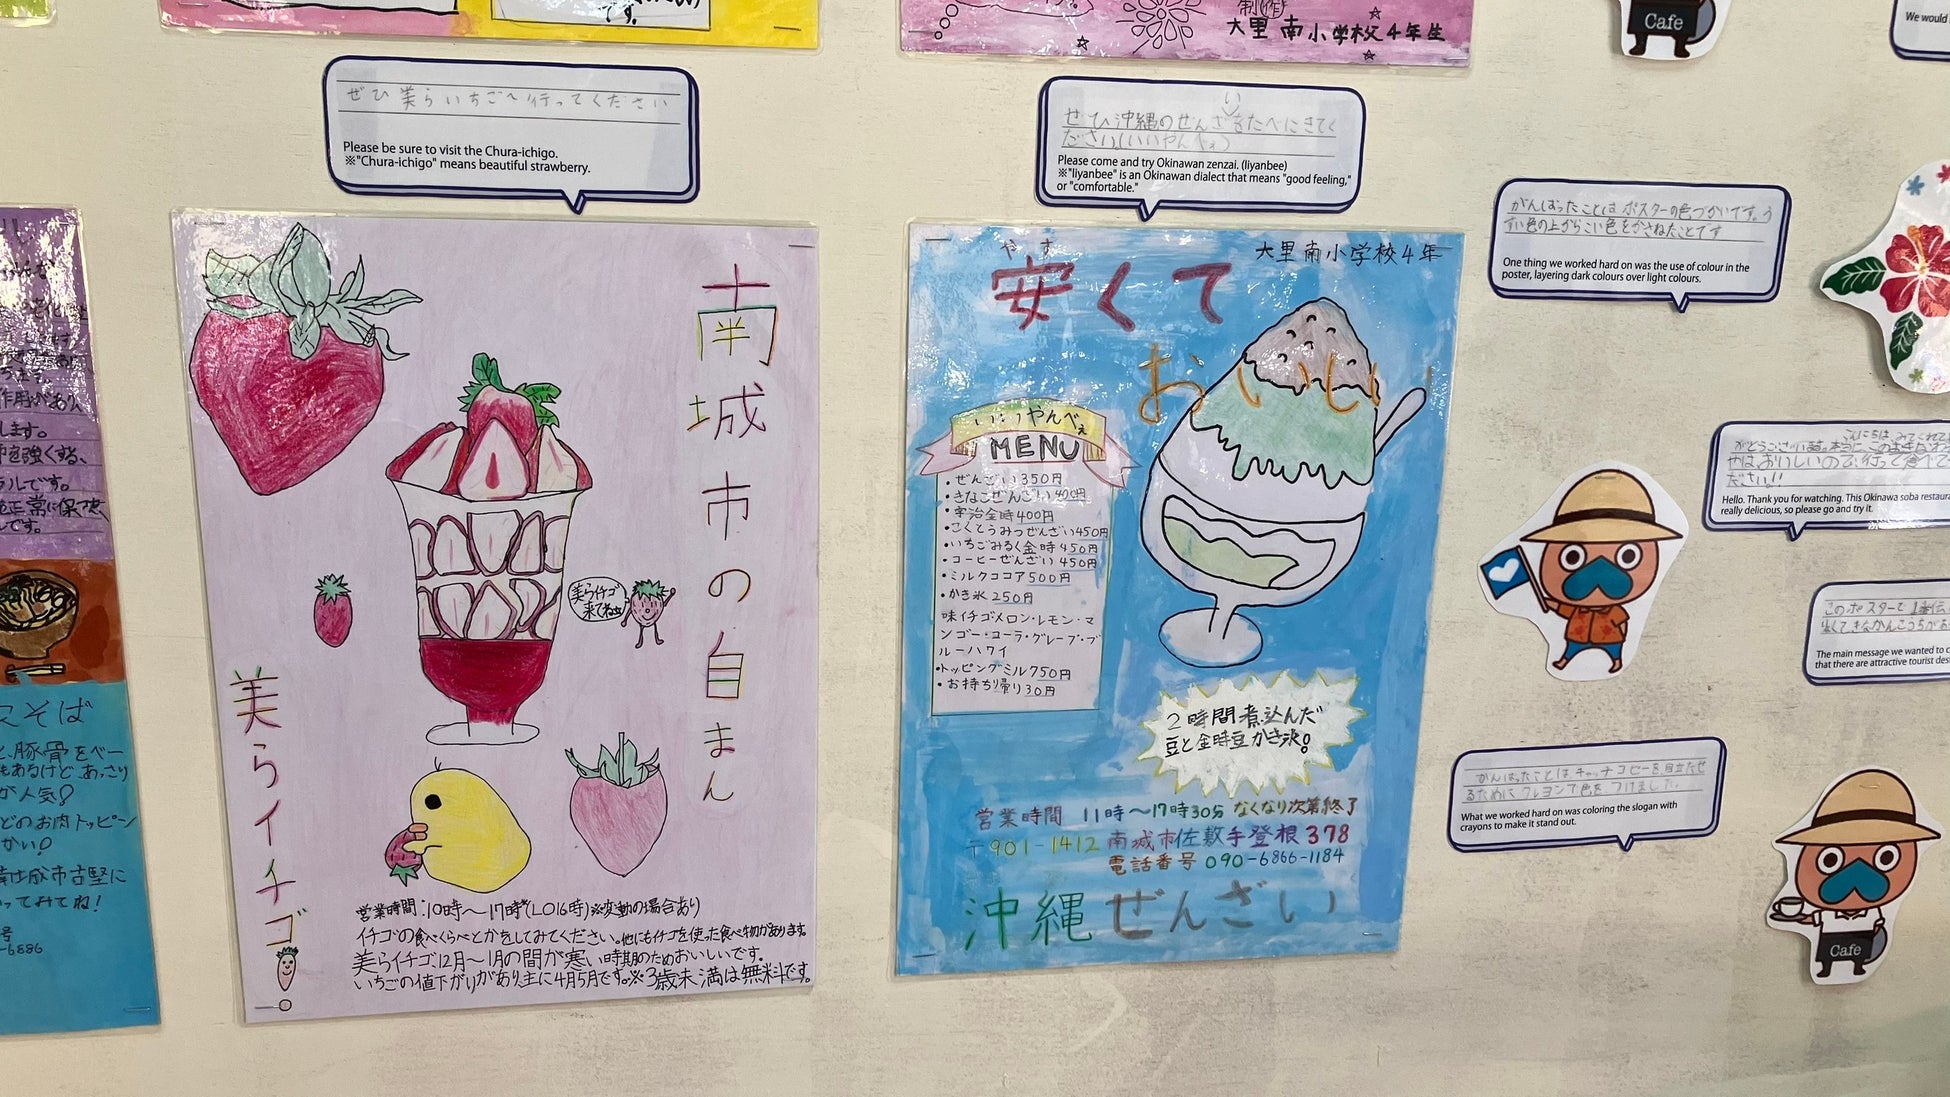 です。
制作
大里南小学校4年生
Cafe
We would
ぜひ美らいちごへ行ってください
Please be sure to visit the Chura-ichigo.
※"Chura-ichigo" means beautiful strawberry.
南城市の自まん
美らイチゴ
美らイチゴ
来てね
営業時間:10時〜17時(LO16時)※変動の場合あり
イチゴの食べくらべとかをしてみてください。他にもイチゴを使った食べ物があります。
美らイチゴ12月〜1月の間が寒い時期のためおいしいです。
いちごの値下がりがあり主に4月5月です。※3歳未満は無料です。
い
ぜひ沖縄のぜんざをたべにきてく
ださい。(いいやんべぇ)
Please come and try Okinawan zenzai. (Iiyanbee)
※"Iiyanbee" is an Okinawan dialect that means "good feeling,"
or "comfortable."
大里南小学校4年
やす
安くて
おいしい
いいやんべぇ
MENU
・ぜんざい350円
・きなこぜんざい400円
・宇治金時400円
・こくとうみつぜんざい450円
・いちごみるく金時450円
・コーヒーぜんざい450円
・ミルクココア500円
・かき氷250円
味イチゴメロン・レモン・マ
ンゴー・コーラ・グレープ・ブ
ルーハワイ
・トッピングミルク50円
・お持ち帰り30円
2時間煮込んだ
豆と金時豆かき氷!
営業時間 11時〜17時30分 なくなり次第終了
〒901-1412 南城市佐敷手登根378
電話番号 090-6866-1184
沖縄ぜんざい
がんばったことはポスターの色づかいです。う
すい色の上からこい色をかさねたことです
One thing we worked hard on was the use of colour in the
poster, layering dark colours over light colours.
こんにちは みてくれてあ
がとうございます。
Hello. Thank you for watching. This Okinawa soba restaura
really delicious, so please go and try it.
このポスターで1番伝
The main message we wanted to c
that there are attractive tourist des
がんばったことは、キャッチコピーを目立たせ
るためにクレヨンで色をつけました。
What we worked hard on was coloring the slogan with
crayons to make it stand out.
Cafe
作用があり、
します。
を強くする、
ラルです。
正常に保つ
んです。
そば
豚骨をベー
もあるけどあっさり
が人気!
どのお肉トッピーン
かい!
ってみてね!
号
-6886